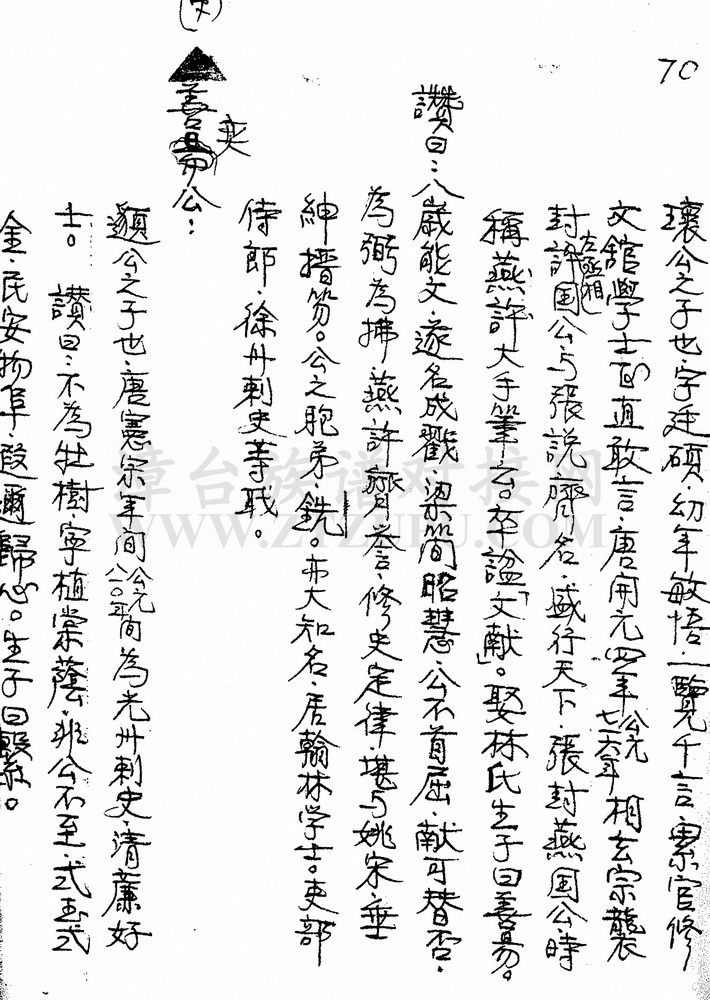 70
瓌公之子也·字廷碩·幼年敏悟·一覽千言·累官修
文舘學士·面直敢言·唐開元四年公元七一六年相玄宗襲
封許国公左丞相与張說齊名·盛行天下·張封燕国公·時
稱燕許大手筆云。卒諡「文献」。娶林氏生子曰善易。
讃曰：八歲能文·遂名成戳·梁簡昭慧·公不首屈·献可替否·
為弼為拂·燕許齊誉·修史定律·堪与姚宋·垂
紳搢笏。公之胞弟·銑。亦大知名·居翰林学士。吏部
侍郎·徐州刺史等职。
善易公：
奕
(史)
頲公之子也·唐憲宗年间公元八一〇年間為光州刺史·清薕好
士。 讃曰：不為牡樹·寧植棠蔭·非公不至·式玉式
金·民安物阜·遐邇歸心。生子曰繫。
漳台族谱对接网
WWW.ZTZUPU.COM